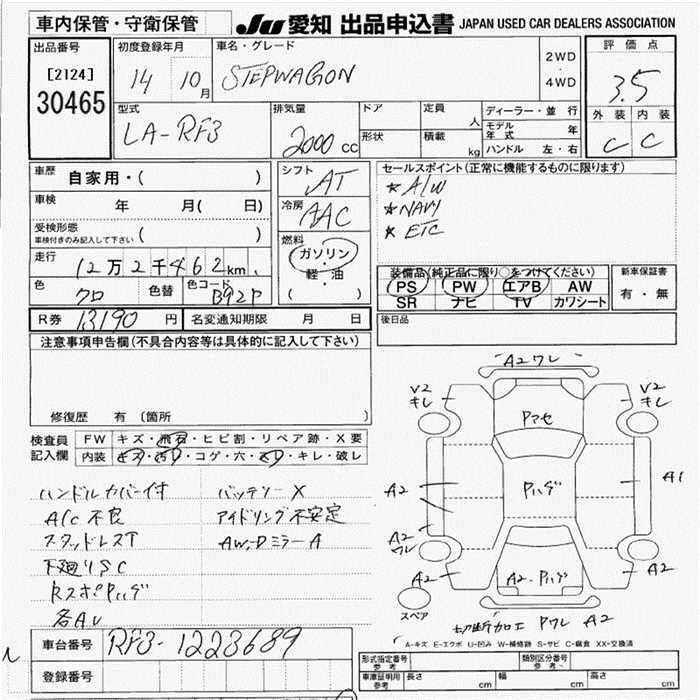 車内保管・守衛保管
JU 愛知 出品申込書 JAPAN USED CAR DEALERS ASSOCIATION
出品番号
[2124]
30465
初度登録年月
14 10月
車名・グレード
STEPWAGON
2WD
・
4WD
評価点
3.5
外装 内装
C C
型式
LA-RF3
排気量
2000cc
ドア
形状
定員
人
積載
kg
ディーラー・並行
モデル年式 年
ハンドル 左・右
車歴 自家用・( )
車検 年 月( 日)
受検形態
車検付きのみ記入して下さい ( )
走行 12万2千462km
色 クロ 色替 色コード B92P
シフト AT
冷房 AAC
燃料
ガソリン
・
軽・油
( )
セールスポイント(正常に機能するものに限ります)
★ A/W
★ NAVI
★ ETC
装備品(純正品に限り○をつけてください)
PS PW エアB AW
SR ナビ TV カワシート
新車保証書
有・無
R券 13190円 名変通知期限 月 日
後日品
注意事項申告欄(不具合内容等は具体的に記入して下さい)
修復歴 有 〔箇所
検査員
記入欄
FW キズ・飛石・ヒビ割・リペア跡・X要
内装 キズ・汚レ・コゲ・穴・スレ・キレ・破レ
ハンドルカバー付
A/C 不良
スタッドレスT
下廻りSC
RスポPハゲ
各AU
バッテリーX
アイドリング不安定
AW,DミラーA
A2ワレ
V2
キレ
V2
キレ
Pマセ
Pハゲ
A2
A1
A2
ワレ
A2
A2
A2・Pハゲ
スペア
切断加工 Pワレ A2
A-キズ E-エクボ U-凹み W-補修跡 S-サビ C-腐食 XX-交換済
車台番号 RF3-1223689
登録番号
形式指定番号
参考
類別区分番号
参考
車庫証明用
参考
長さ cm 幅 cm 高さ cm